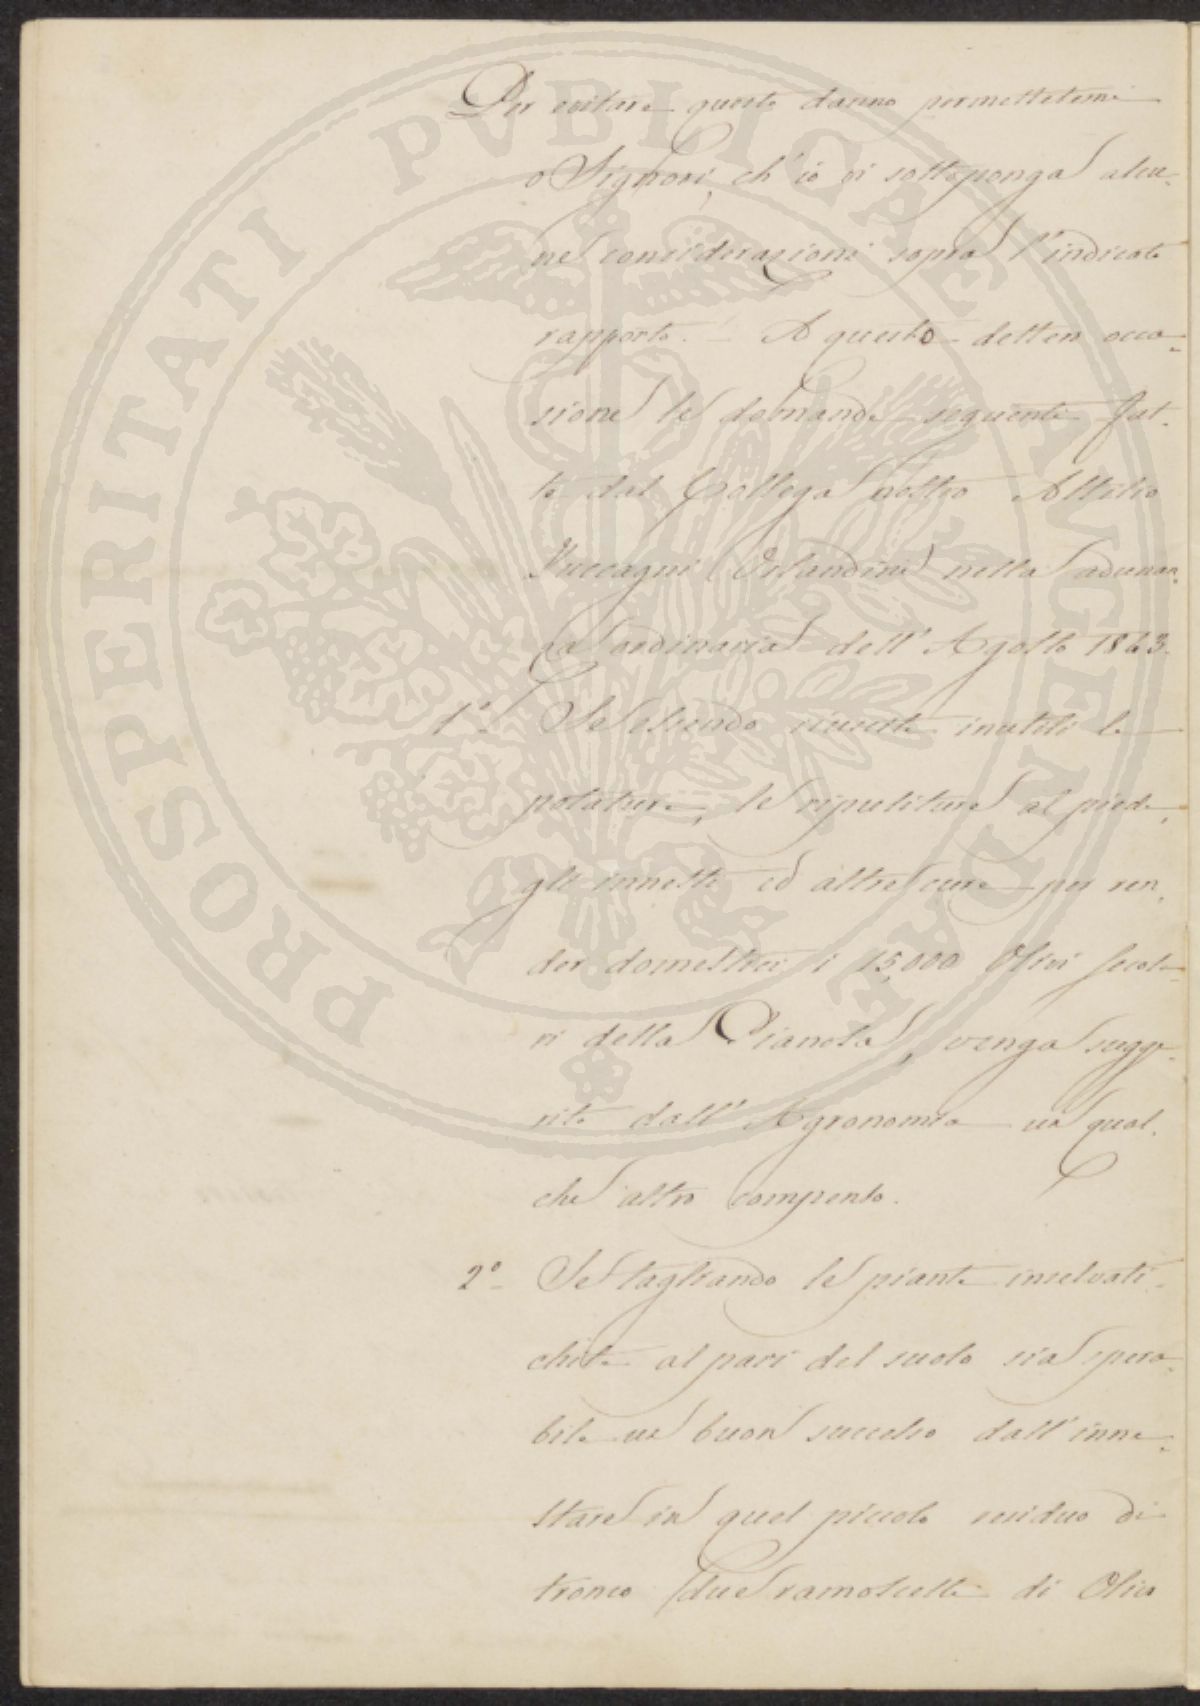 Per evitare questo danno permettetemi
o Signori, ch' io vi sottoponga alcu-
ne considerazioni sopra l' indicato
rapporto. — A questo dettero occa-
sione le domande seguenti fat-
te dal Collega nostro Attilio
Zuccagni Orlandini nella adunan-
za ordinaria dell' Agosto 1863.
1º Se essendo riuscite inutili le
potature, le ripuliture al piede,
gli innesti ed altre cure per ren-
der domestici i 15,000 Olivi secola-
ri della Pianosa, venga sugge-
rito dall' Agronomia un qual-
che altro compenso.
2º Se tagliando le piante inselvati-
chite al pari del suolo sia spera-
bile un buon successo dall' inne-
stare in quel piccolo residuo di
tronco due ramoscelli di Olivo
PROSPERITATI PVBLICAE AVGENDAE